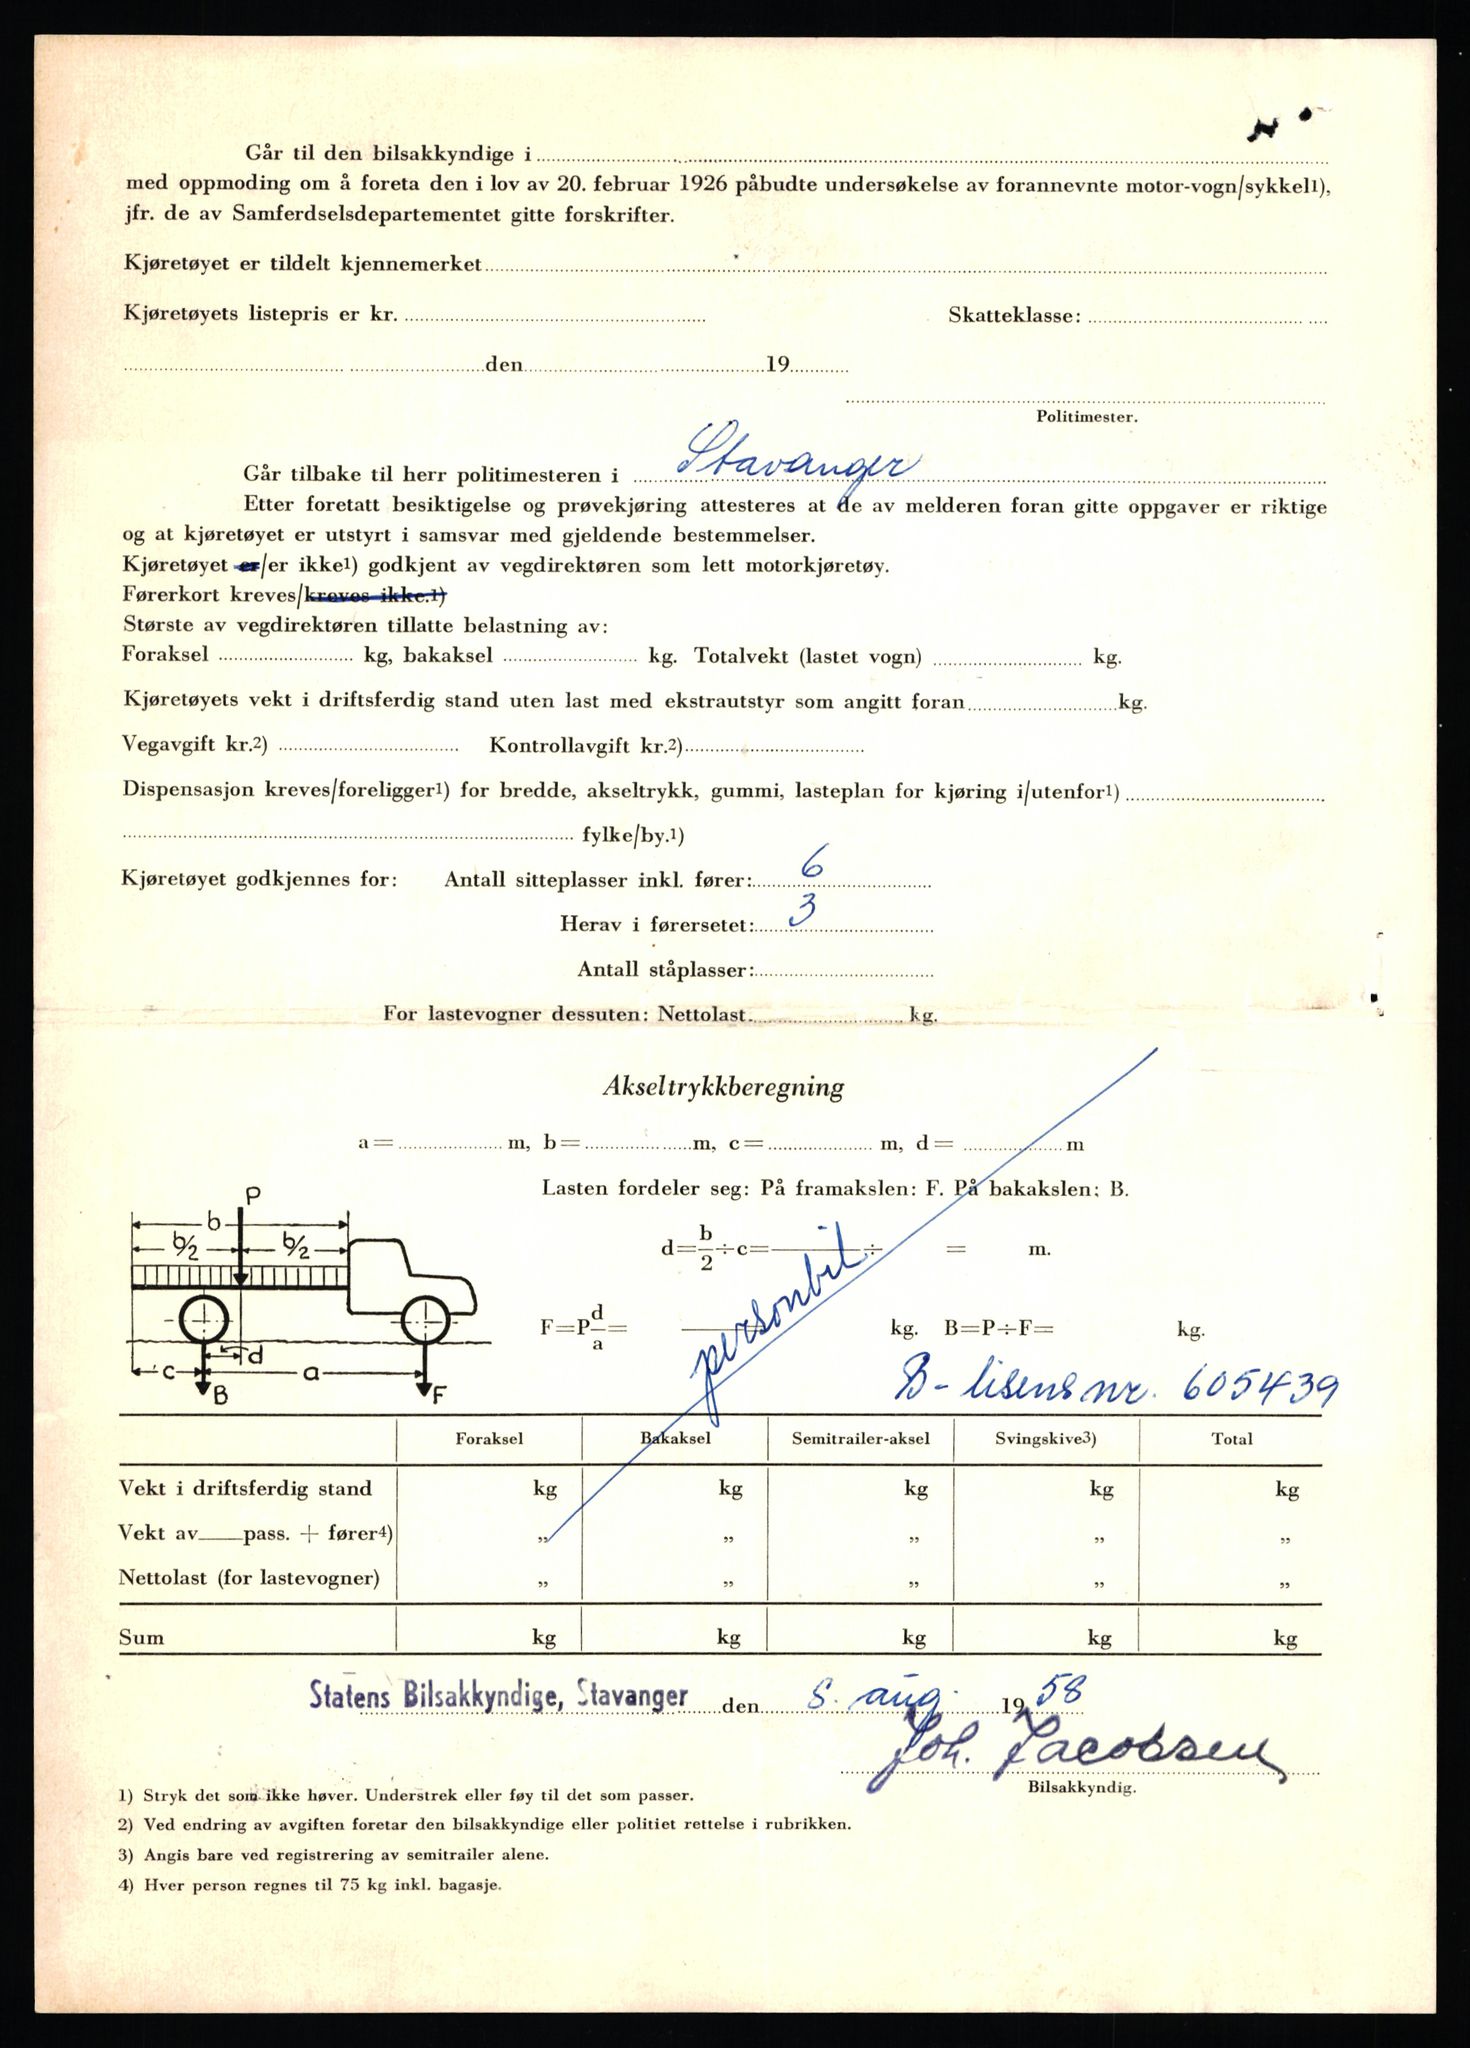 Går til den bilsakkyndige i
med oppmoding om å foreta den i lov av 20. februar 1926 påbudte undersøkelse av forannevnte motor-vogn/sykkel1),
jfr. de av Samferdselsdepartementet gitte forskrifter.
Kjøretøyet er tildelt kjennemerket
Kjøretøyets listepris er kr. Skatteklasse:
den 19
Politimester.
Går tilbake til herr politimesteren i Stavanger
Etter foretatt besiktigelse og prøvekjøring attesteres at de av melderen foran gitte oppgaver er riktige
og at kjøretøyet er utstyrt i samsvar med gjeldende bestemmelser.
Kjøretøyet er/er ikke1) godkjent av vegdirektøren som lett motorkjøretøy.
Førerkort kreves/kreves ikke.1)
Største av vegdirektøren tillatte belastning av:
Foraksel kg, bakaksel kg. Totalvekt (lastet vogn) kg.
Kjøretøyets vekt i driftsferdig stand uten last med ekstrautstyr som angitt foran kg.
Vegavgift kr.2) Kontrollavgift kr.2)
Dispensasjon kreves/foreligger1) for bredde, akseltrykk, gummi, lasteplan for kjøring i/utenfor1)
fylke/by.1)
Kjøretøyet godkjennes for: Antall sitteplasser inkl. fører: 6
Herav i førersetet: 3
Antall ståplasser:
For lastevogner dessuten: Nettolast kg.
Akseltrykkberegning
a= m, b= m, c= m, d= m
Lasten fordeler seg: På framakslen: F. På bakakslen: B.
P
b
b/2 b/2
d=b/2÷c= ÷ = m.
personbil
F=P d/a= kg. B=P÷F= kg.
c d a
B F
B- lisens nr. 605439
Foraksel Bakaksel Semitrailer-aksel Svingskive3) Total
Vekt i driftsferdig stand kg kg kg kg kg
Vekt av pass. + fører4) „ „ „ „ „
Nettolast (for lastevogner) „ „ „ „ „
Sum kg kg kg kg kg
Statens Bilsakkyndige, Stavanger den 8. aug. 1958
Joh. Jacobsen
Bilsakkyndig.
1) Stryk det som ikke høver. Understrek eller føy til det som passer.
2) Ved endring av avgiften foretar den bilsakkyndige eller politiet rettelse i rubrikken.
3) Angis bare ved registrering av semitrailer alene.
4) Hver person regnes til 75 kg inkl. bagasje.